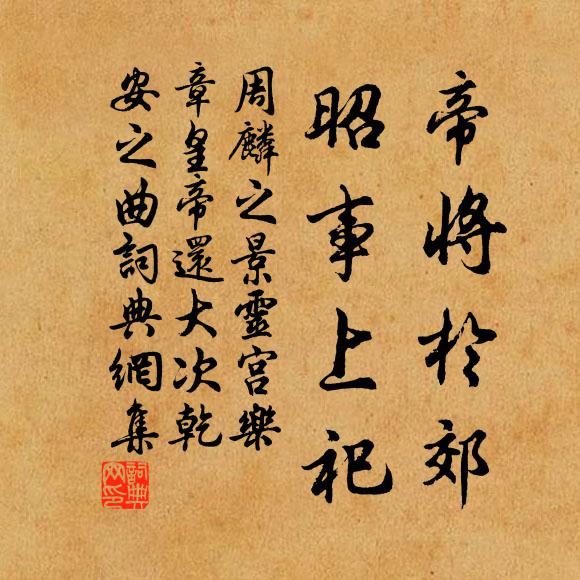 帝將於郊
昭事上祀
周麟之景靈宮樂
章皇帝還大次乾
安之曲詞典網集
詞典網印